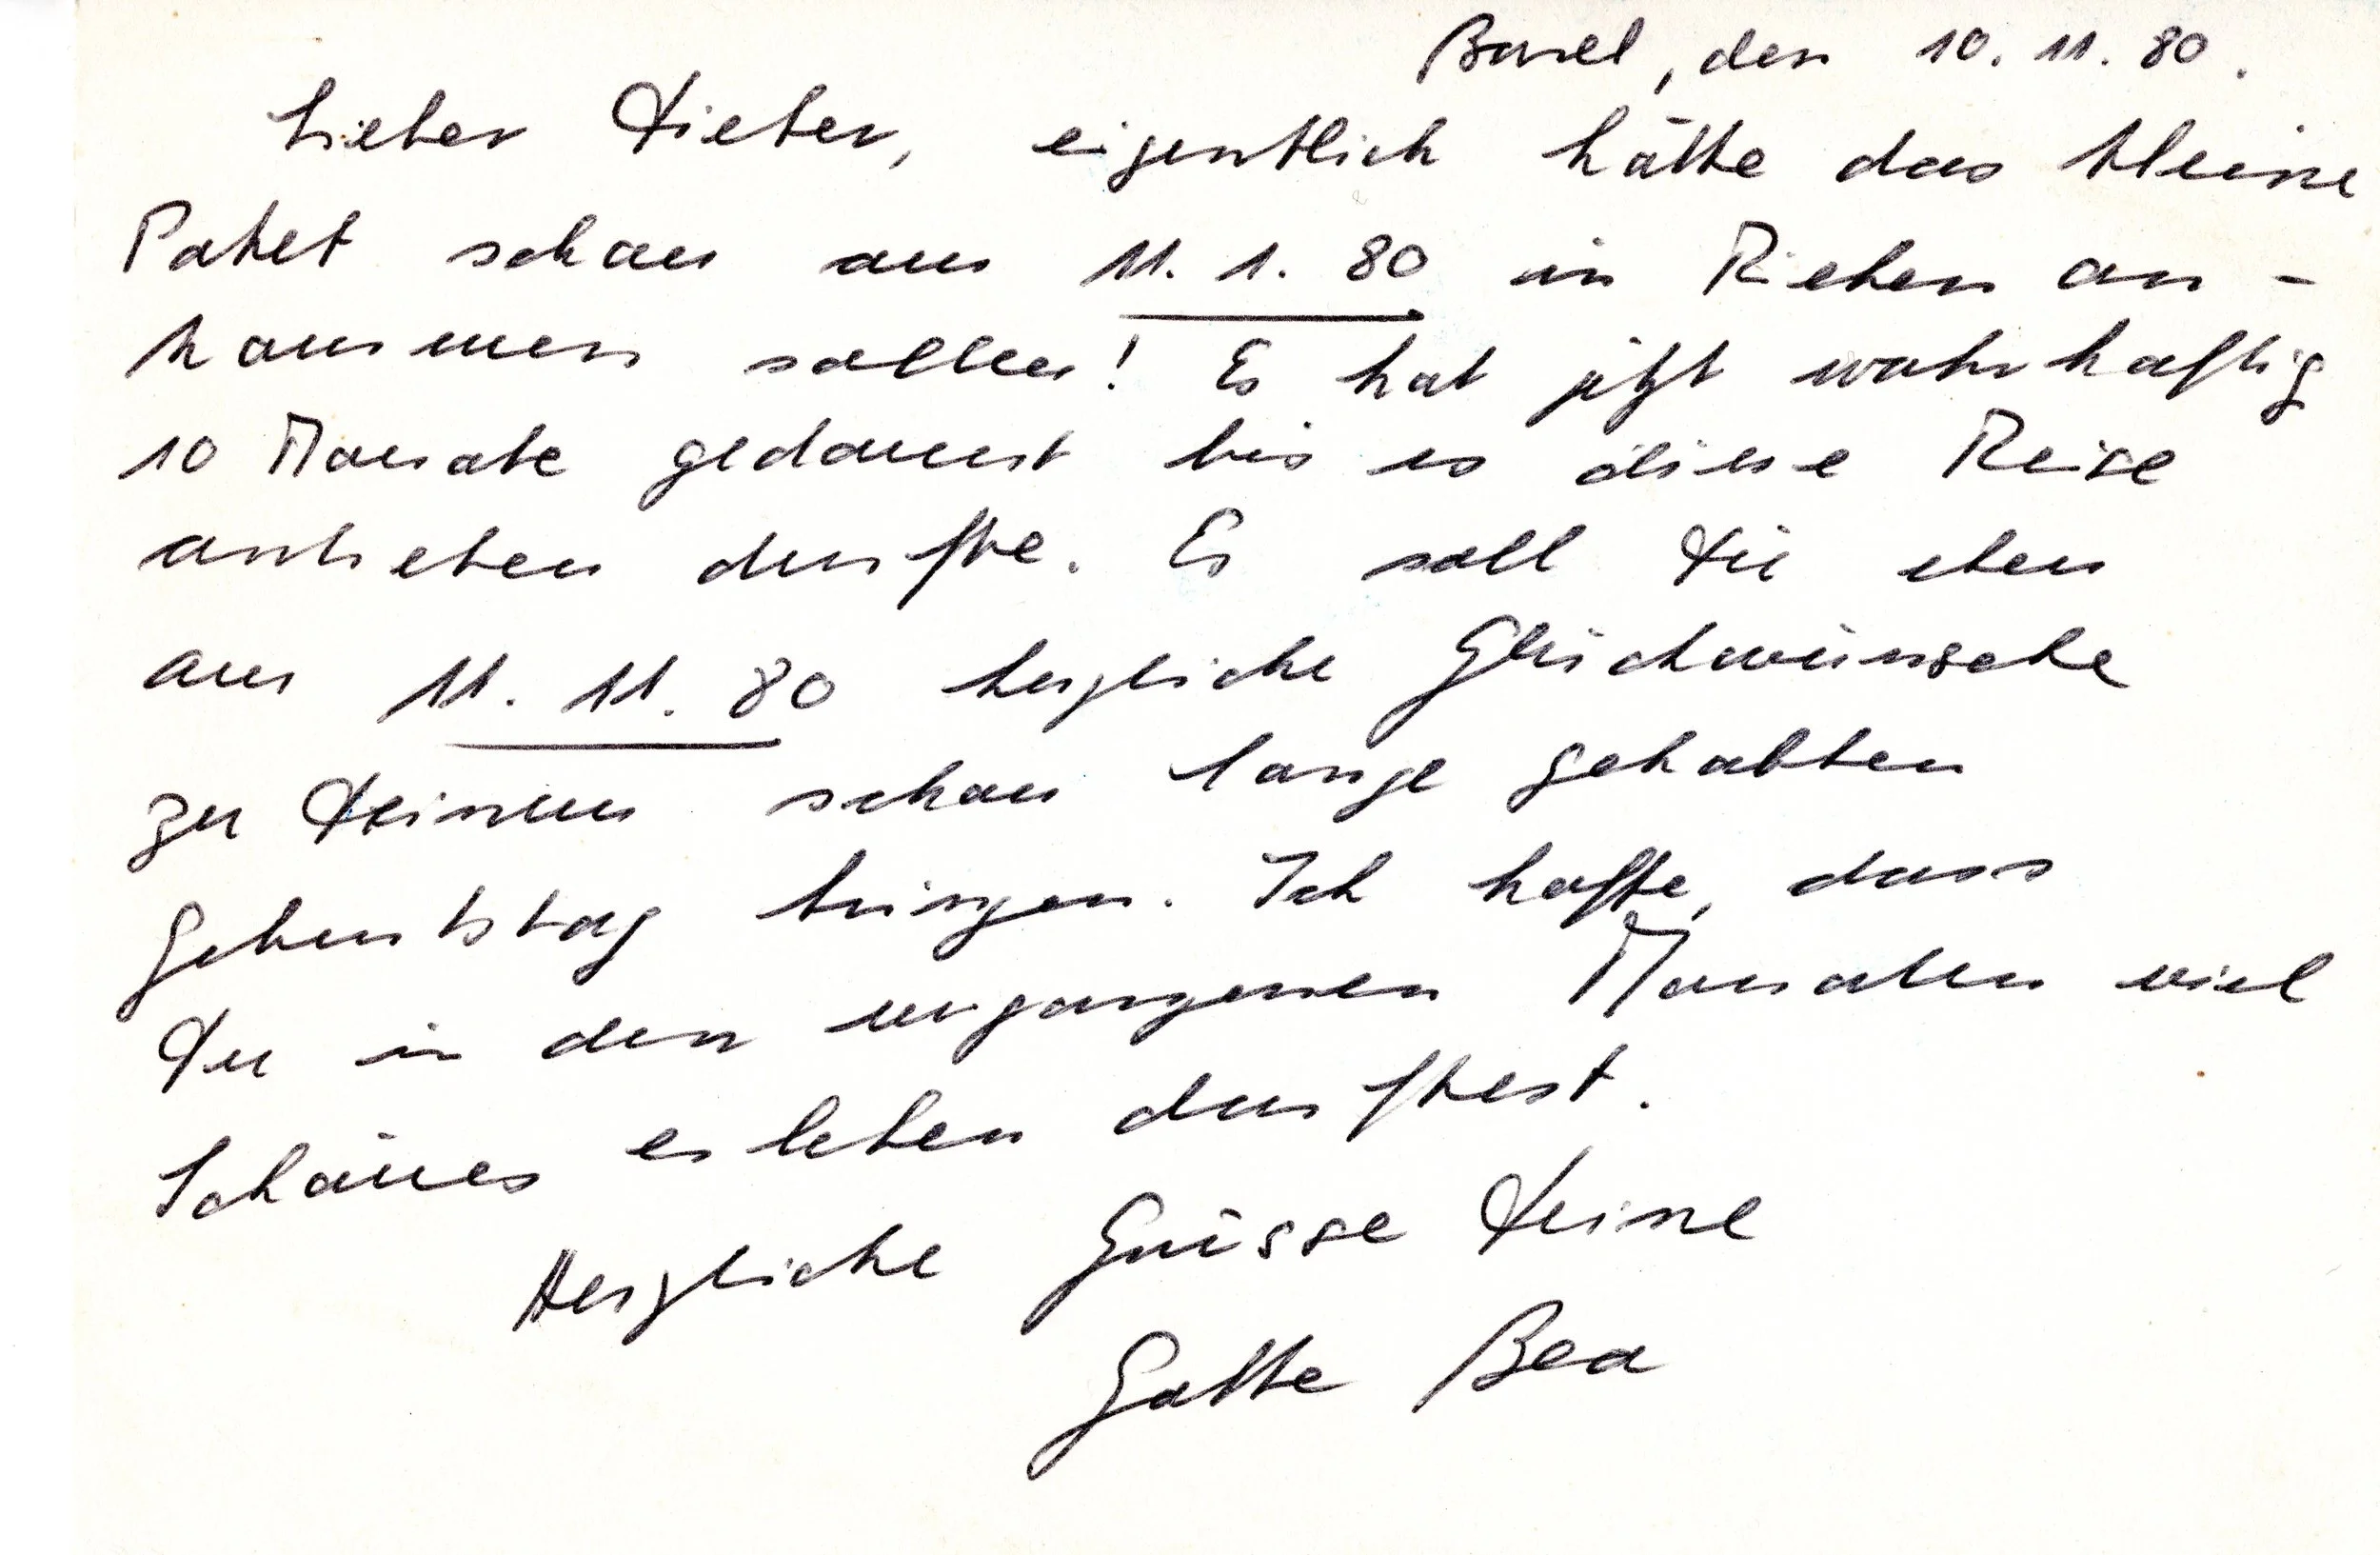 Basel, den 10. 11. 80.
Lieber Dieter, eigentlich hätte das kleine
Paket schon am 11. 1. 80 in Riehen an-
kommen sollen! Es hat jetzt wahrhaftig
10 Monate gedauert bis es diese Reise
antreten durfte. Es soll Dir eben
am 11. 11. 80 herzliche Glückwünsche
zu Deinem schon lange gehabten
Geburtstag bringen. Ich hoffe, dass
Du in den vergangenen Monaten viel
Schönes erleben durftest.
Herzliche Grüsse Deine
Gotte Bea